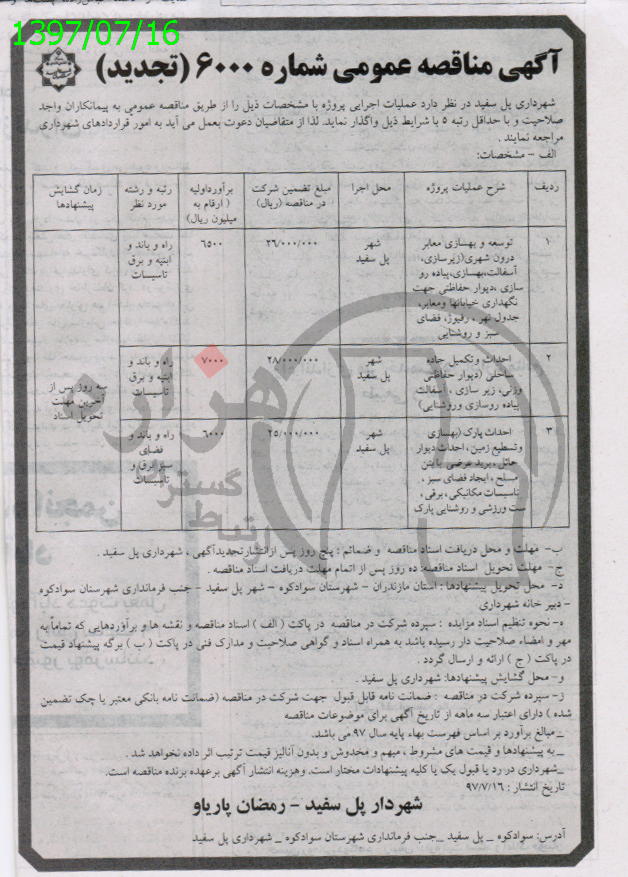 1397/07/16
آگهی مناقصه عمومی شماره ۶۰۰۰ (تجدید)
شهرداری پل سفید در نظر دارد عملیات اجرایی پروژه با مشخصات ذیل را از طریق مناقصه عمومی به پیمانکاران واجد
صلاحیت و با حداقل رتبه ۵ با شرایط ذیل واگذار نماید. لذا از متقاضیان دعوت بعمل می آید به امور قراردادهای شهرداری
مراجعه نمایند .
الف – مشخصات:
ردیف شرح عملیات پروژه محل اجرا مبلغ تضمین شرکت در مناقصه (ریال) برآورداولیه ( ارقام به میلیون ریال) رتبه و رشته مورد نظر زمان گشایش پیشنهادها
۱ توسعه و بهسازی معابر شهر ۲۶/۰۰۰/۰۰۰ ۶۵۰۰ راه و باند و
درون شهری(زیرسازی، پل سفید ابنیه و برق
آسفالت،بهسازی،پیاده رو تاسیسات
سازی ،دیوار حفاظتی جهت
نگهداری خیابانها ومعابر،
جدول نهر ، رفیوژ، فضای
سبز و روشنایی
۲ احداث وتکمیل جاده شهر ۲۸/۰۰۰/۰۰۰ ۷۰۰۰ راه و باند و
ساحلی (دیوار حفاظتی پل سفید ابنیه و برق
وزنی، زیر سازی ، آسفالت تاسیسات سه روز پس از
پیاده روسازی وروشنایی) آخرین مهلت
تحویل اسناد
۳ احداث پارک (بهسازی شهر ۲۵/۰۰۰/۰۰۰ ۶۰۰۰ راه و باند و
وتسطیح زمین، احداث دیوار پل سفید فضای
حائل ،برید عرضی بابتن سبز،برق و
مسلح ، ایجاد فضای سبز ، تاسیسات
تاسیسات مکانیکی، برقی ،
ست ورزشی و روشنایی پارک
هزاره
گستر
ارتباط
ب- مهلت و محل دریافت اسناد مناقصه و ضمائم : پنج روز پس ازانتشارتجدیدآگهی ، شهرداری پل سفید .
ج- مهلت تحویل اسناد مناقصه: ده روز پس از اتمام مهلت دریافت اسناد مناقصه .
د- محل تحویل پیشنهادها : استان مازندران – شهرستان سوادکوه – شهر پل سفید – جنب فرمانداری شهرستان سوادکوه
– دبیر خانه شهرداری
ه- نحوه تنظیم اسناد مزایده : سپرده شرکت در مناقصه در پاکت ( الف ) اسناد مناقصه و نقشه ها و برآوردهایی که تماماً به
مهر و امضاء صلاحیت دار رسیده باشد به همراه اسناد و گواهی صلاحیت و مدارک فنی در پاکت ( ب ) برگه پیشنهاد قیمت
در پاکت ( ج ) ارائه و ارسال گردد .
و- محل گشایش پیشنهادها: شهرداری پل سفید .
ز- سپرده شرکت در مناقصه : ضمانت نامه قابل قبول جهت شرکت در مناقصه (ضمانت نامه بانکی معتبر یا چک تضمین
شده ) دارای اعتبار سه ماهه از تاریخ آگهی برای موضوعات مناقصه
_ مبالغ برآورد بر اساس فهرست بهاء پایه سال ۹۷ می باشد.
_ به پیشنهادها و قیمت های مشروط ، مبهم و مخدوش و بدون آنالیز قیمت ترتیب اثر داده نخواهد شد .
_شهرداری در رد یا قبول یک یا کلیه پیشنهادات مختار است. وهزینه انتشار آگهی برعهده برنده مناقصه است.
تاریخ انتشار : ۹۷/۷/۱۶
شهردار پل سفید – رمضان پاریاو
آدرس: سوادکوه _ پل سفید _جنب فرمانداری شهرستان سوادکوه _ شهرداری پل سفید